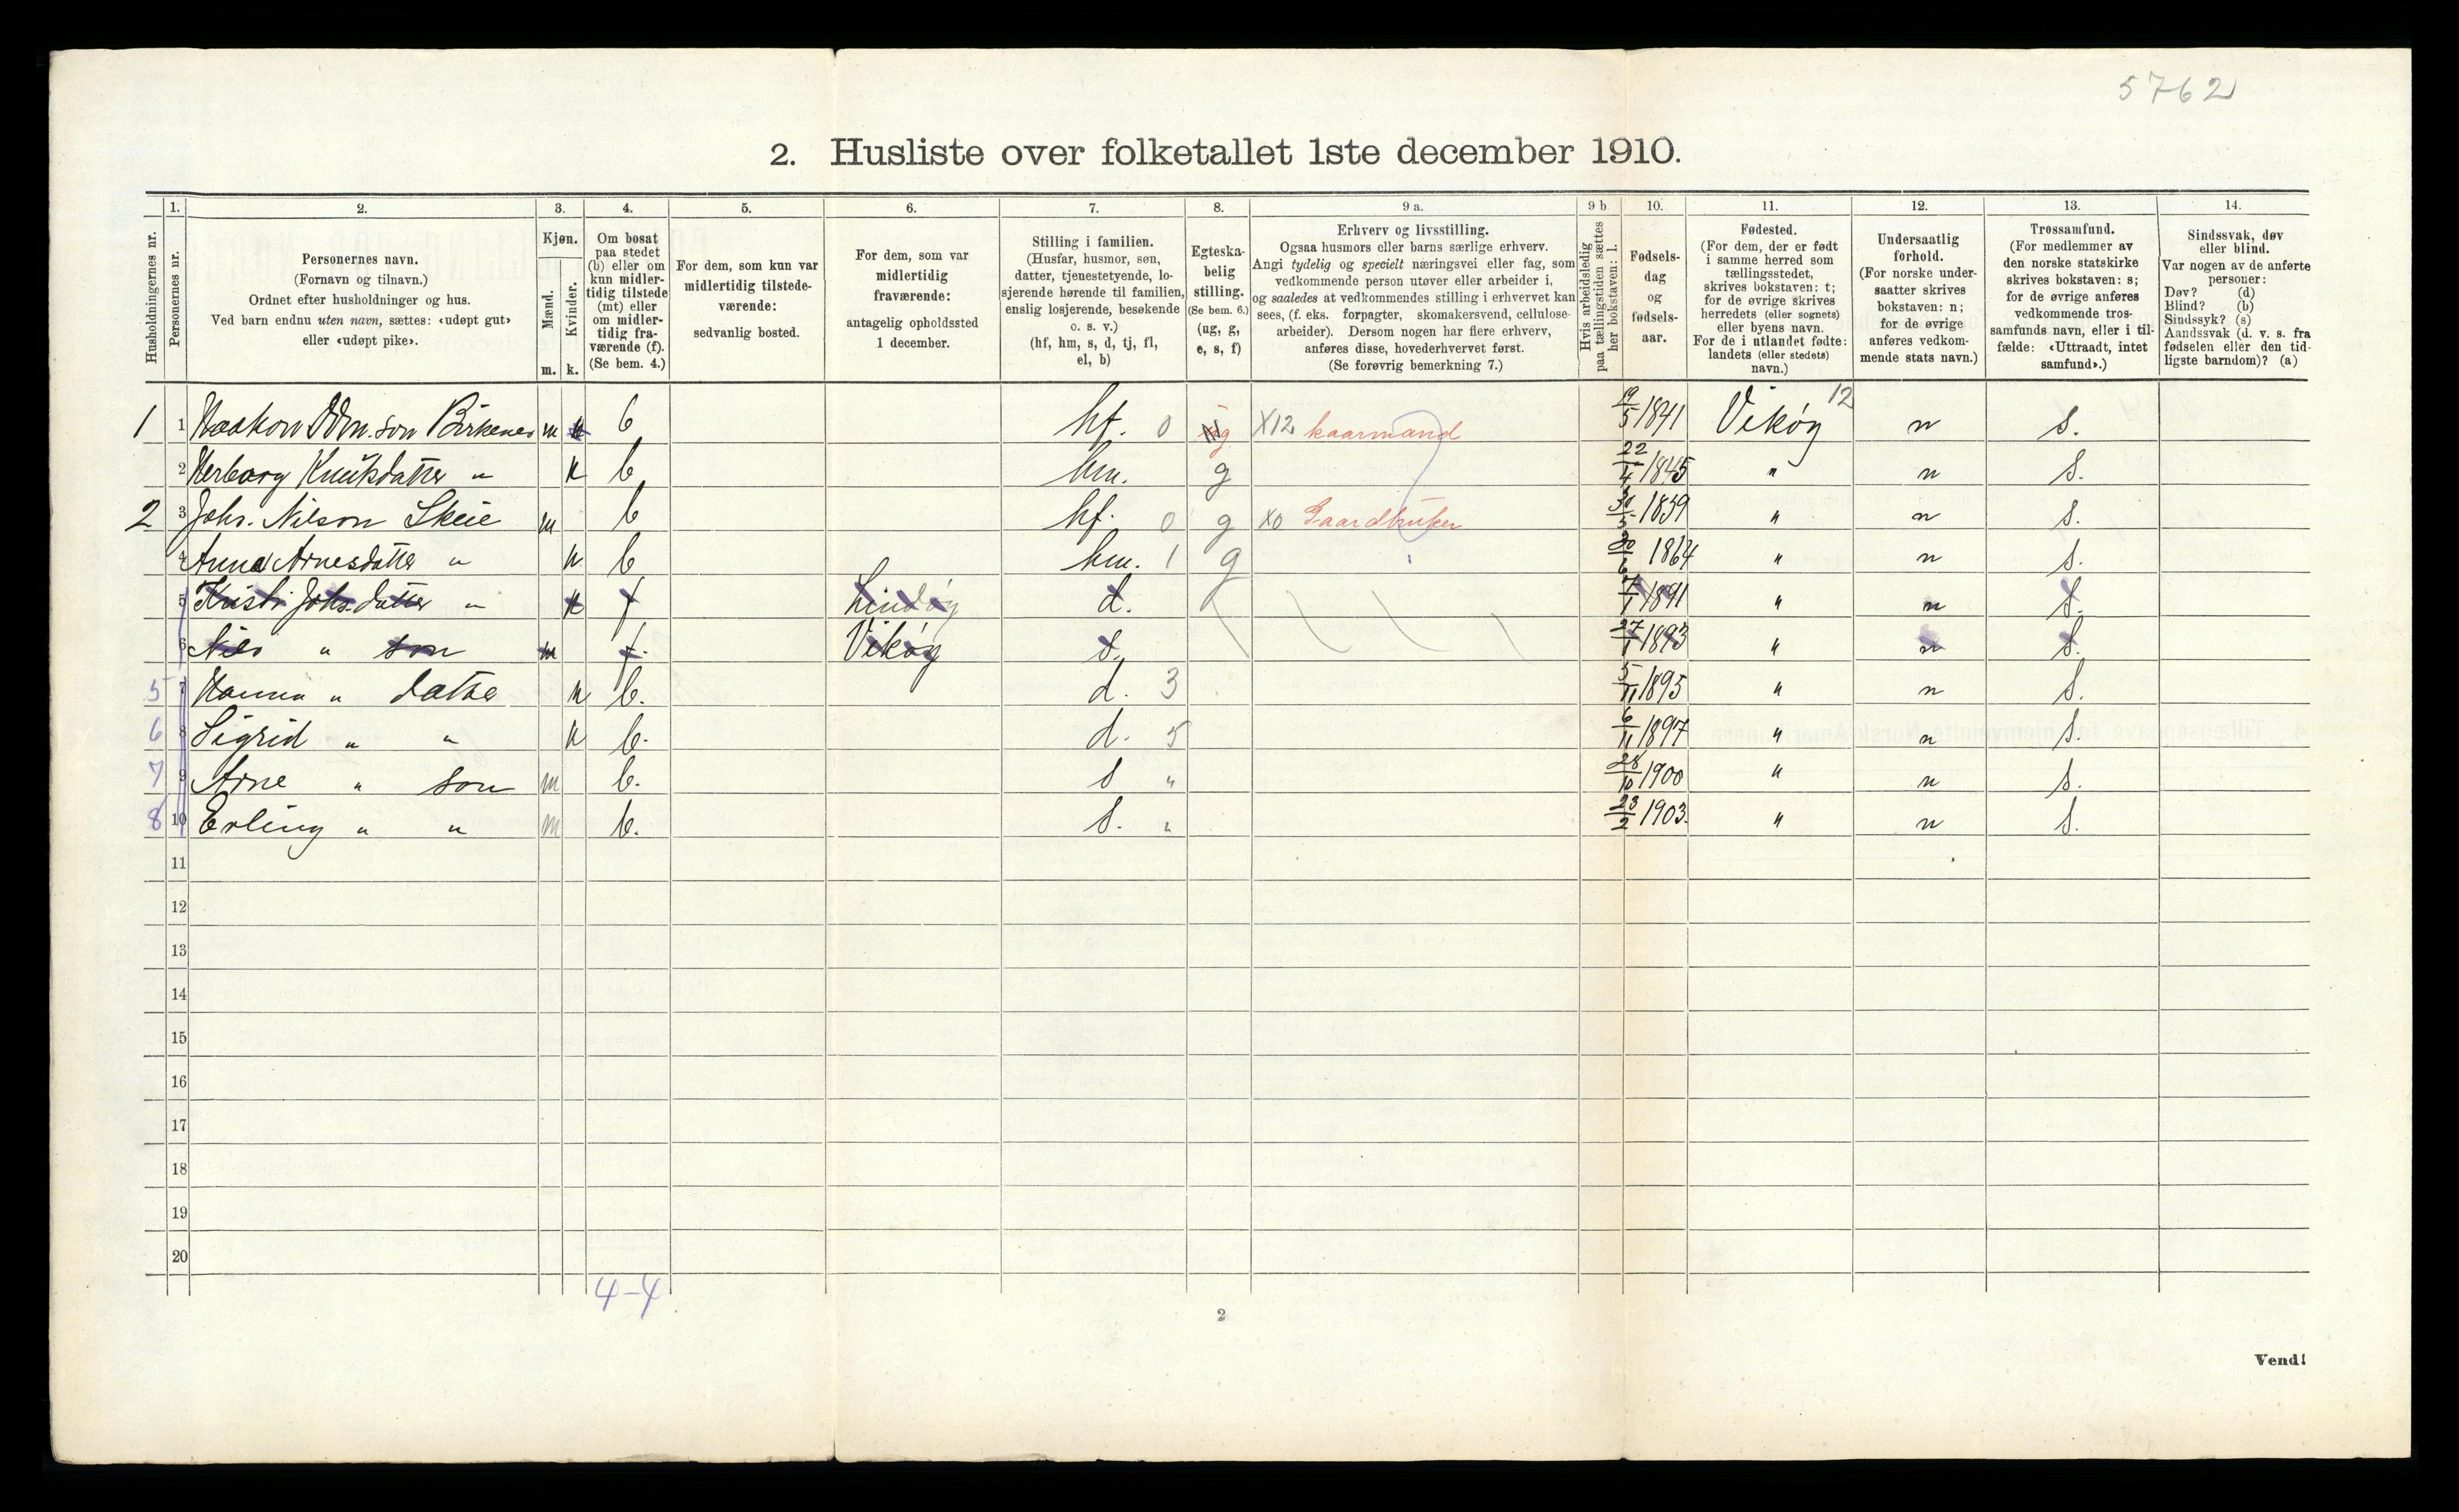 5762
2. Husliste over folketallet 1ste december 1910.
Husholdningernes nr.
1. Personernes nr.
2. Personernes navn.
(Fornavn og tilnavn.)
Ordnet efter husholdninger og hus.
Ved barn endnu uten navn, sættes: «udøpt gut»
eller «udøpt pike».
3. Kjøn.
Mænd. m.
Kvinder. k.
4. Om bosat
paa stedet
(b) eller om
kun midler-
tidig tilstede
(mt) eller
om midler-
tidig fra-
værende (f).
(Se bem. 4.)
5. For dem, som kun var
midlertidig tilstede-
værende:
sedvanlig bosted.
6. For dem, som var
midlertidig
fraværende:
antagelig opholdssted
1 december.
7. Stilling i familien.
(Husfar, husmor, søn,
datter, tjenestetyende, lo-
sjerende hørende til familien,
enslig losjerende, besøkende
o. s. v.)
(hf, hm, s, d, tj, fl,
el, b)
8. Egteska-
belig
stilling.
(Se bem. 6.)
(ug, g,
e, s, f)
9 a. Erhverv og livsstilling.
Ogsaa husmors eller barns særlige erhverv.
Angi tydelig og specielt næringsvei eller fag, som
vedkommende person utøver eller arbeider i,
og saaledes at vedkommendes stilling i erhvervet kan
sees, (f. eks. forpagter, skomakersvend, cellulose-
arbeider). Dersom nogen har flere erhverv,
anføres disse, hovederhvervet først.
(Se forøvrig bemerkning 7.)
9 b
Hvis arbeidsledig
paa tællingstiden sættes
her bokstaven: l.
10. Fødsels-
dag
og
fødsels-
aar.
11. Fødested.
(For dem, der er født
i samme herred som
tællingsstedet,
skrives bokstaven: t;
for de øvrige skrives
herredets (eller sognets)
eller byens navn.
For de i utlandet fødte:
landets (eller stedets)
navn.)
12. Undersaatlig
forhold.
(For norske under-
saatter skrives
bokstaven: n;
for de øvrige
anføres vedkom-
mende stats navn.)
13. Trossamfund.
(For medlemmer av
den norske statskirke
skrives bokstaven: s;
for de øvrige anføres
vedkommende tros-
samfunds navn, eller i til-
fælde: «Uttraadt, intet
samfund».)
14. Sindssvak, døv
eller blind.
Var nogen av de anførte
personer:
Døv? (d)
Blind? (b)
Sindssyk? (s)
Aandssvak (d. v. s. fra
fødselen eller den tid-
ligste barndom)? (a)
1 1 Haakon son Birkenes m b hf. 0 X12 kaarmand 19/5 1841 Vikøy 12 n s.
2 Herborg Knutsdatter " k b hm. g 22/4 1845 " n s.
2 3 Johs. Nilson Skeie m b hf. 0 g X0 Gaardbruker 1859 " n s.
4 Anna Arnesdatter " k b hm. 1 g 1864 " n s.
5 Kristi Johs.datter " k f Lindøy d. 1891 " n s.
6 Nils " son m f. Vikøy s. 27/1 1893 " n s.
5 7 Hanna " datter k b. d. 3 5/11 1895 " n s.
6 8 Sigrid " " k b. d. 5 6/11 1897 " n s.
7 9 Arne " son m b. s " 28/10 1900 " n s.
8 10 Erling " " m b. s. " 23/2 1903. " n s.
11
12
13
14
15
16
17
18
19
20
4-4
2
Vend!